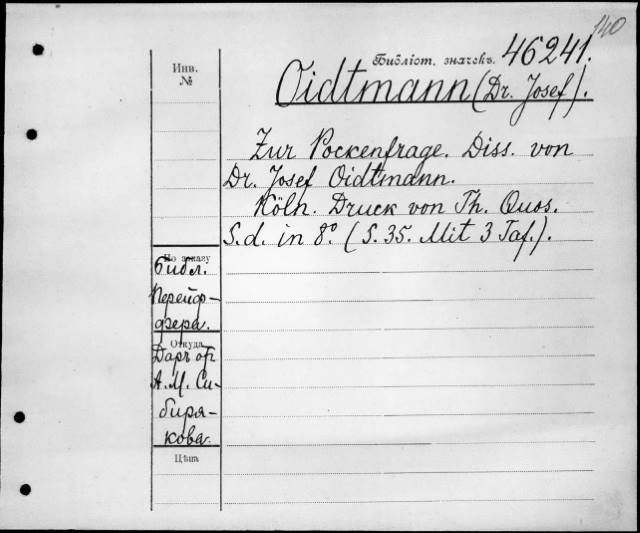 140
Библіот. значекъ. 46241.
Инв.
№
Oidtmann (Dr. Josef).
Zur Pockenfrage. Diss. von
Dr. Josef Oidtmann.
Köln. Druck von Th. Quos.
S.d. in 8º. (S. 35. Mit 3 Taf.).
По заказу
Библ.
Перейф-
фера.
Откуда
Даръ от
А. М. Си-
биря-
кова.
Цѣна